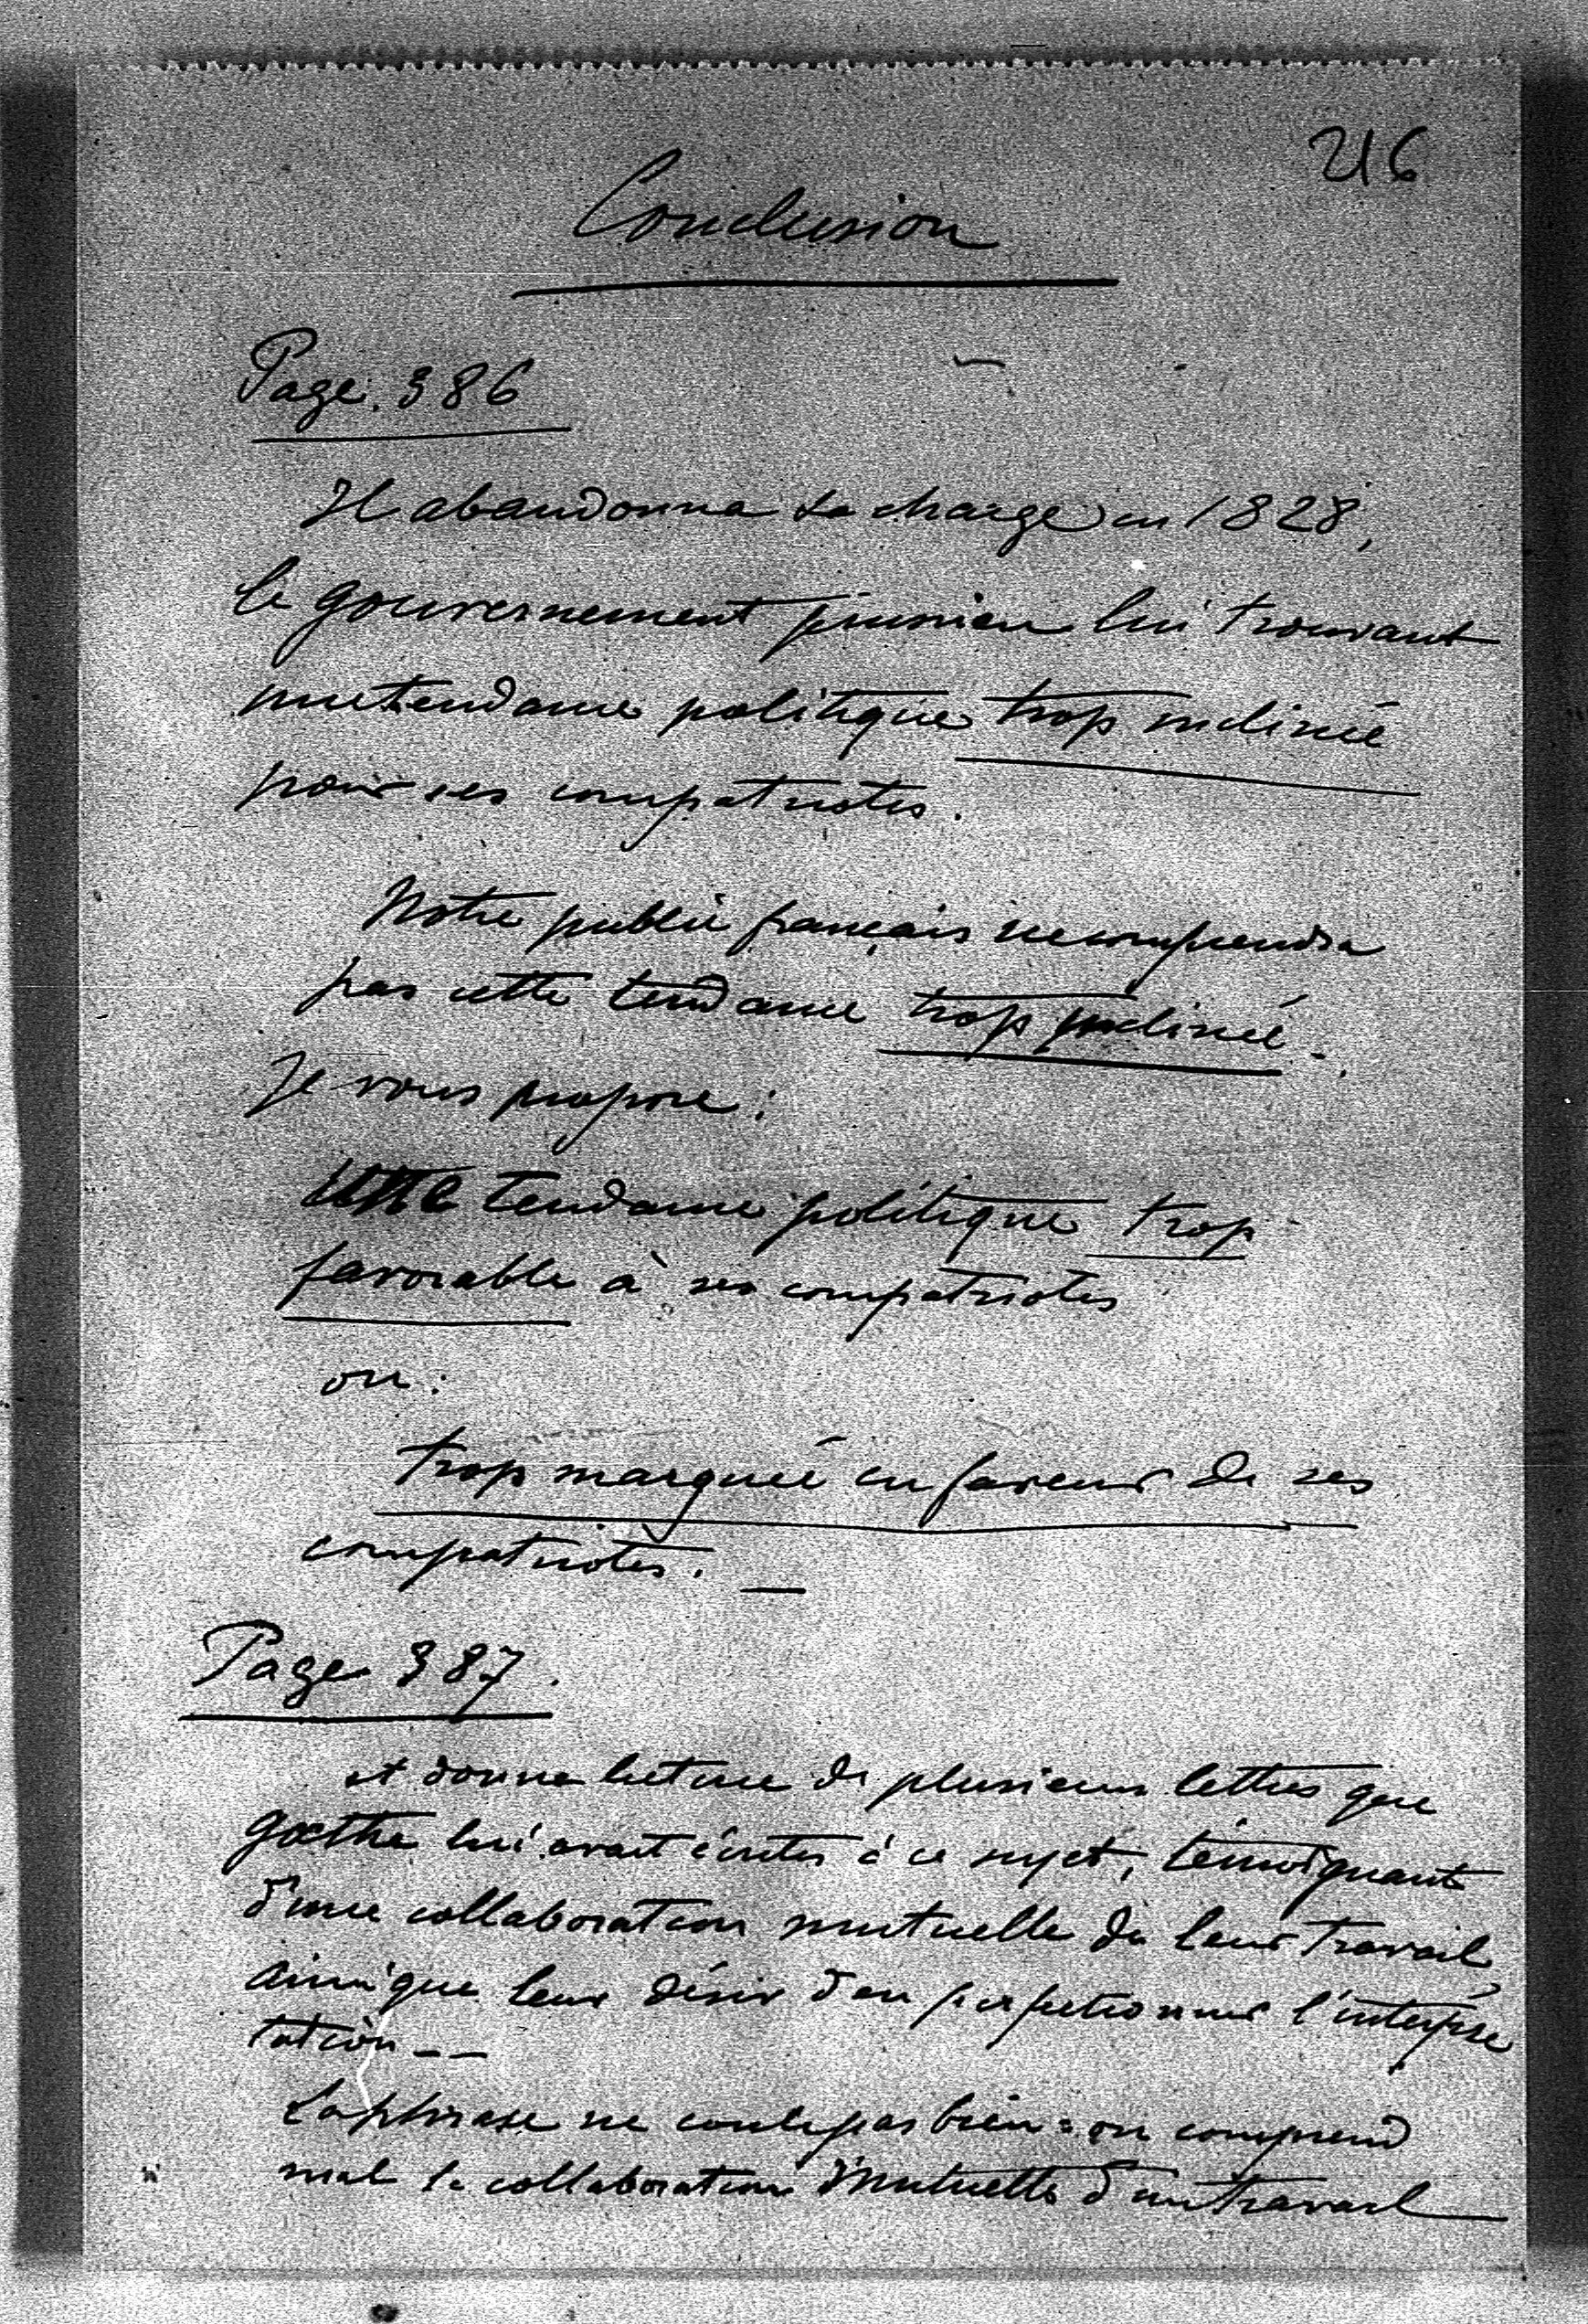 216
Conclusion
Page. 386
Il abandonna sa charge en 1828,
le gouvernement prussien lui trouvant
une tendance politique trop inclinée
pour ses compatriotes.
Notre public français ne comprendra
pas cette tendance trop inclinée.
Je vous propose :
une tendance politique trop
favorable à ses compatriotes
ou :
trop marquée en faveur de ses
compatriotes. —
Page 387.
et donna lecture de plusieurs lettres que
Goethe lui avait écrites à ce sujet, témoignant
d'une collaboration mutuelle de leur travail,
ainsi que leur désir d'en perfectionner l'interpré
tation — —
La phrase ne coule pas bien : on comprend
mal la collaboration mutuelle d'un travail